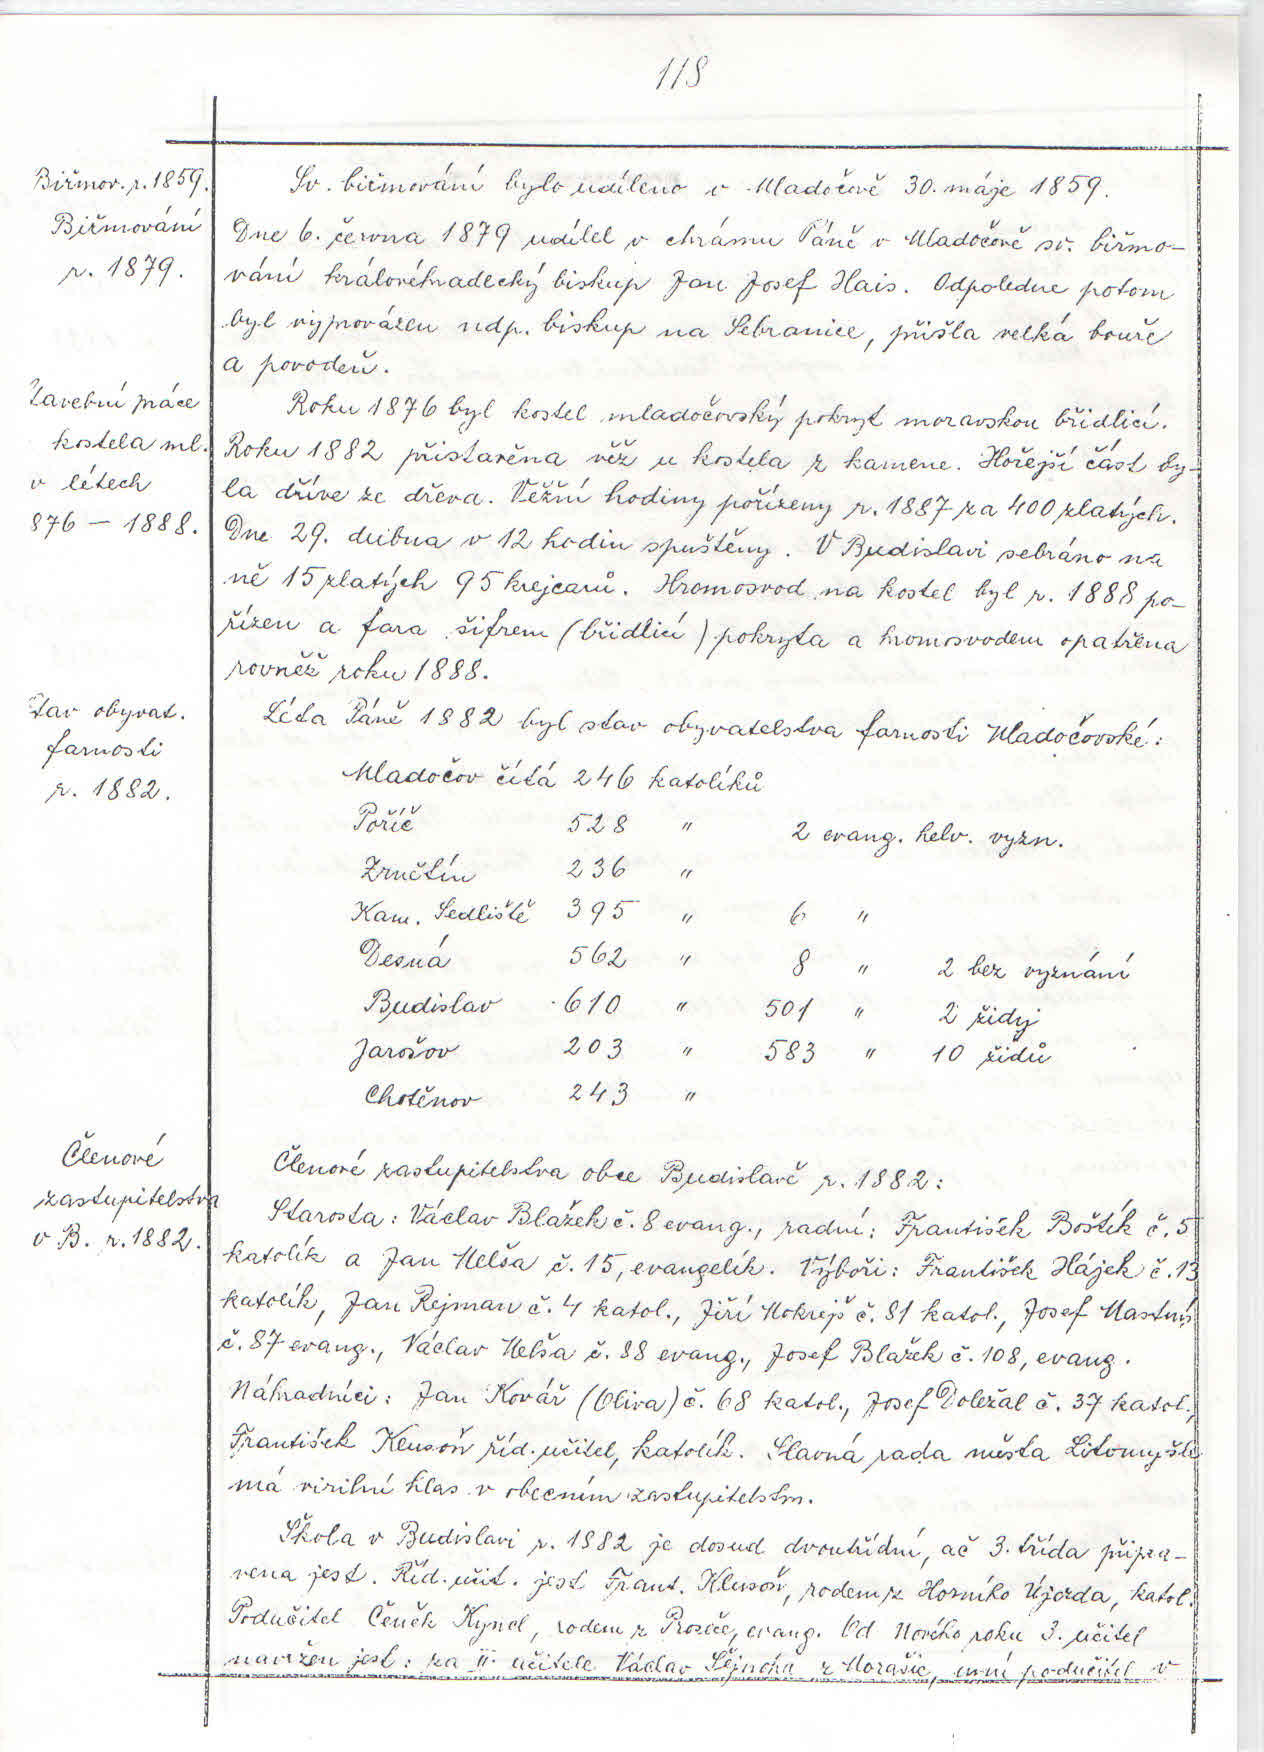 118
Biřmov. r. 1859.
Sv. biřmování bylo uděleno v Mladočově 30. máje 1859.
Biřmování
r. 1879.
Dne 6. června 1879 udílel v chrámu Páně v Mladočově sv. biřmo-
vání královéhradecký biskup Jan Josef Hais. Odpoledne potom
byl vyprovázen ndp. biskup na Sebranice, přišla velká bouře
a povodeň.
kostela ml.
v létech
876 – 1888.
Roku 1876 byl kostel mladočovský pokryt moravskou břidlicí.
Roku 1882 přistavěna věž u kostela z kamene. Hořejší část by-
la dříve ze dřeva. Věžní hodiny pořízeny r. 1887 za 400 zlatých.
Dne 29. dubna v 12 hodin spuštěny. V Budislavi sebráno na
ně 15 zlatých 95 krejcarů. Hromosvod na kostel byl r. 1888 po-
řízen a fara šifrem (břidlicí) pokryta a hromosvodem opatřena
rovněž roku 1888.
tav obyvat.
farnosti
r. 1882.
Léta Páně 1882 byl stav obyvatelstva farnosti Mladočovské:
Mladočov čítá 246 katolíků
Poříč 528 " 2 evang. helv. vyzn.
Zrnětín 236 "
Kam. Sedliště 395 " 6 "
Desná 562 " 8 " 2 bez vyznání
Budislav 610 " 501 " 2 židy
Jarošov 203 " 583 " 10 židů
Chotěnov 243 "
Členové
zastupitelstva
v B. r. 1882.
Členové zastupitelstva obce Budislavě r. 1882:
Starosta: Václav Blažek č. 8 evang., radní: František Boštík č. 5
katolík a Jan Helša č. 15, evangelík. Výboři: František Hájek č. 13
katolík, Jan Rejman č. 4 katol., Jiří Mokrejš č. 81 katol., Josef Mastný
č. 87 evang., Václav Helša č. 88 evang., Josef Blažek č. 108, evang.
Náhradníci: Jan Kovář (Oliva) č. 68 katol., Josef Doležal č. 37 katol.,
František Klusoň říd. učitel, katolík. Slavná rada města Litomyšle
má virilní hlas v obecním zastupitelstm.
Škola v Budislavi r. 1882 je dosud dvoutřídní, ač 3. třída připra-
vena jest. Říd. učit. jest Frant. Klusoň, rodem z Horního Újezda, katol.
Podučitel Čeněk Kyncl, rodem z Proseče, evang. Od Nového roku 3. učitel
navržen jest: za II. učitele Václav z Morašic, nyní podučitel v